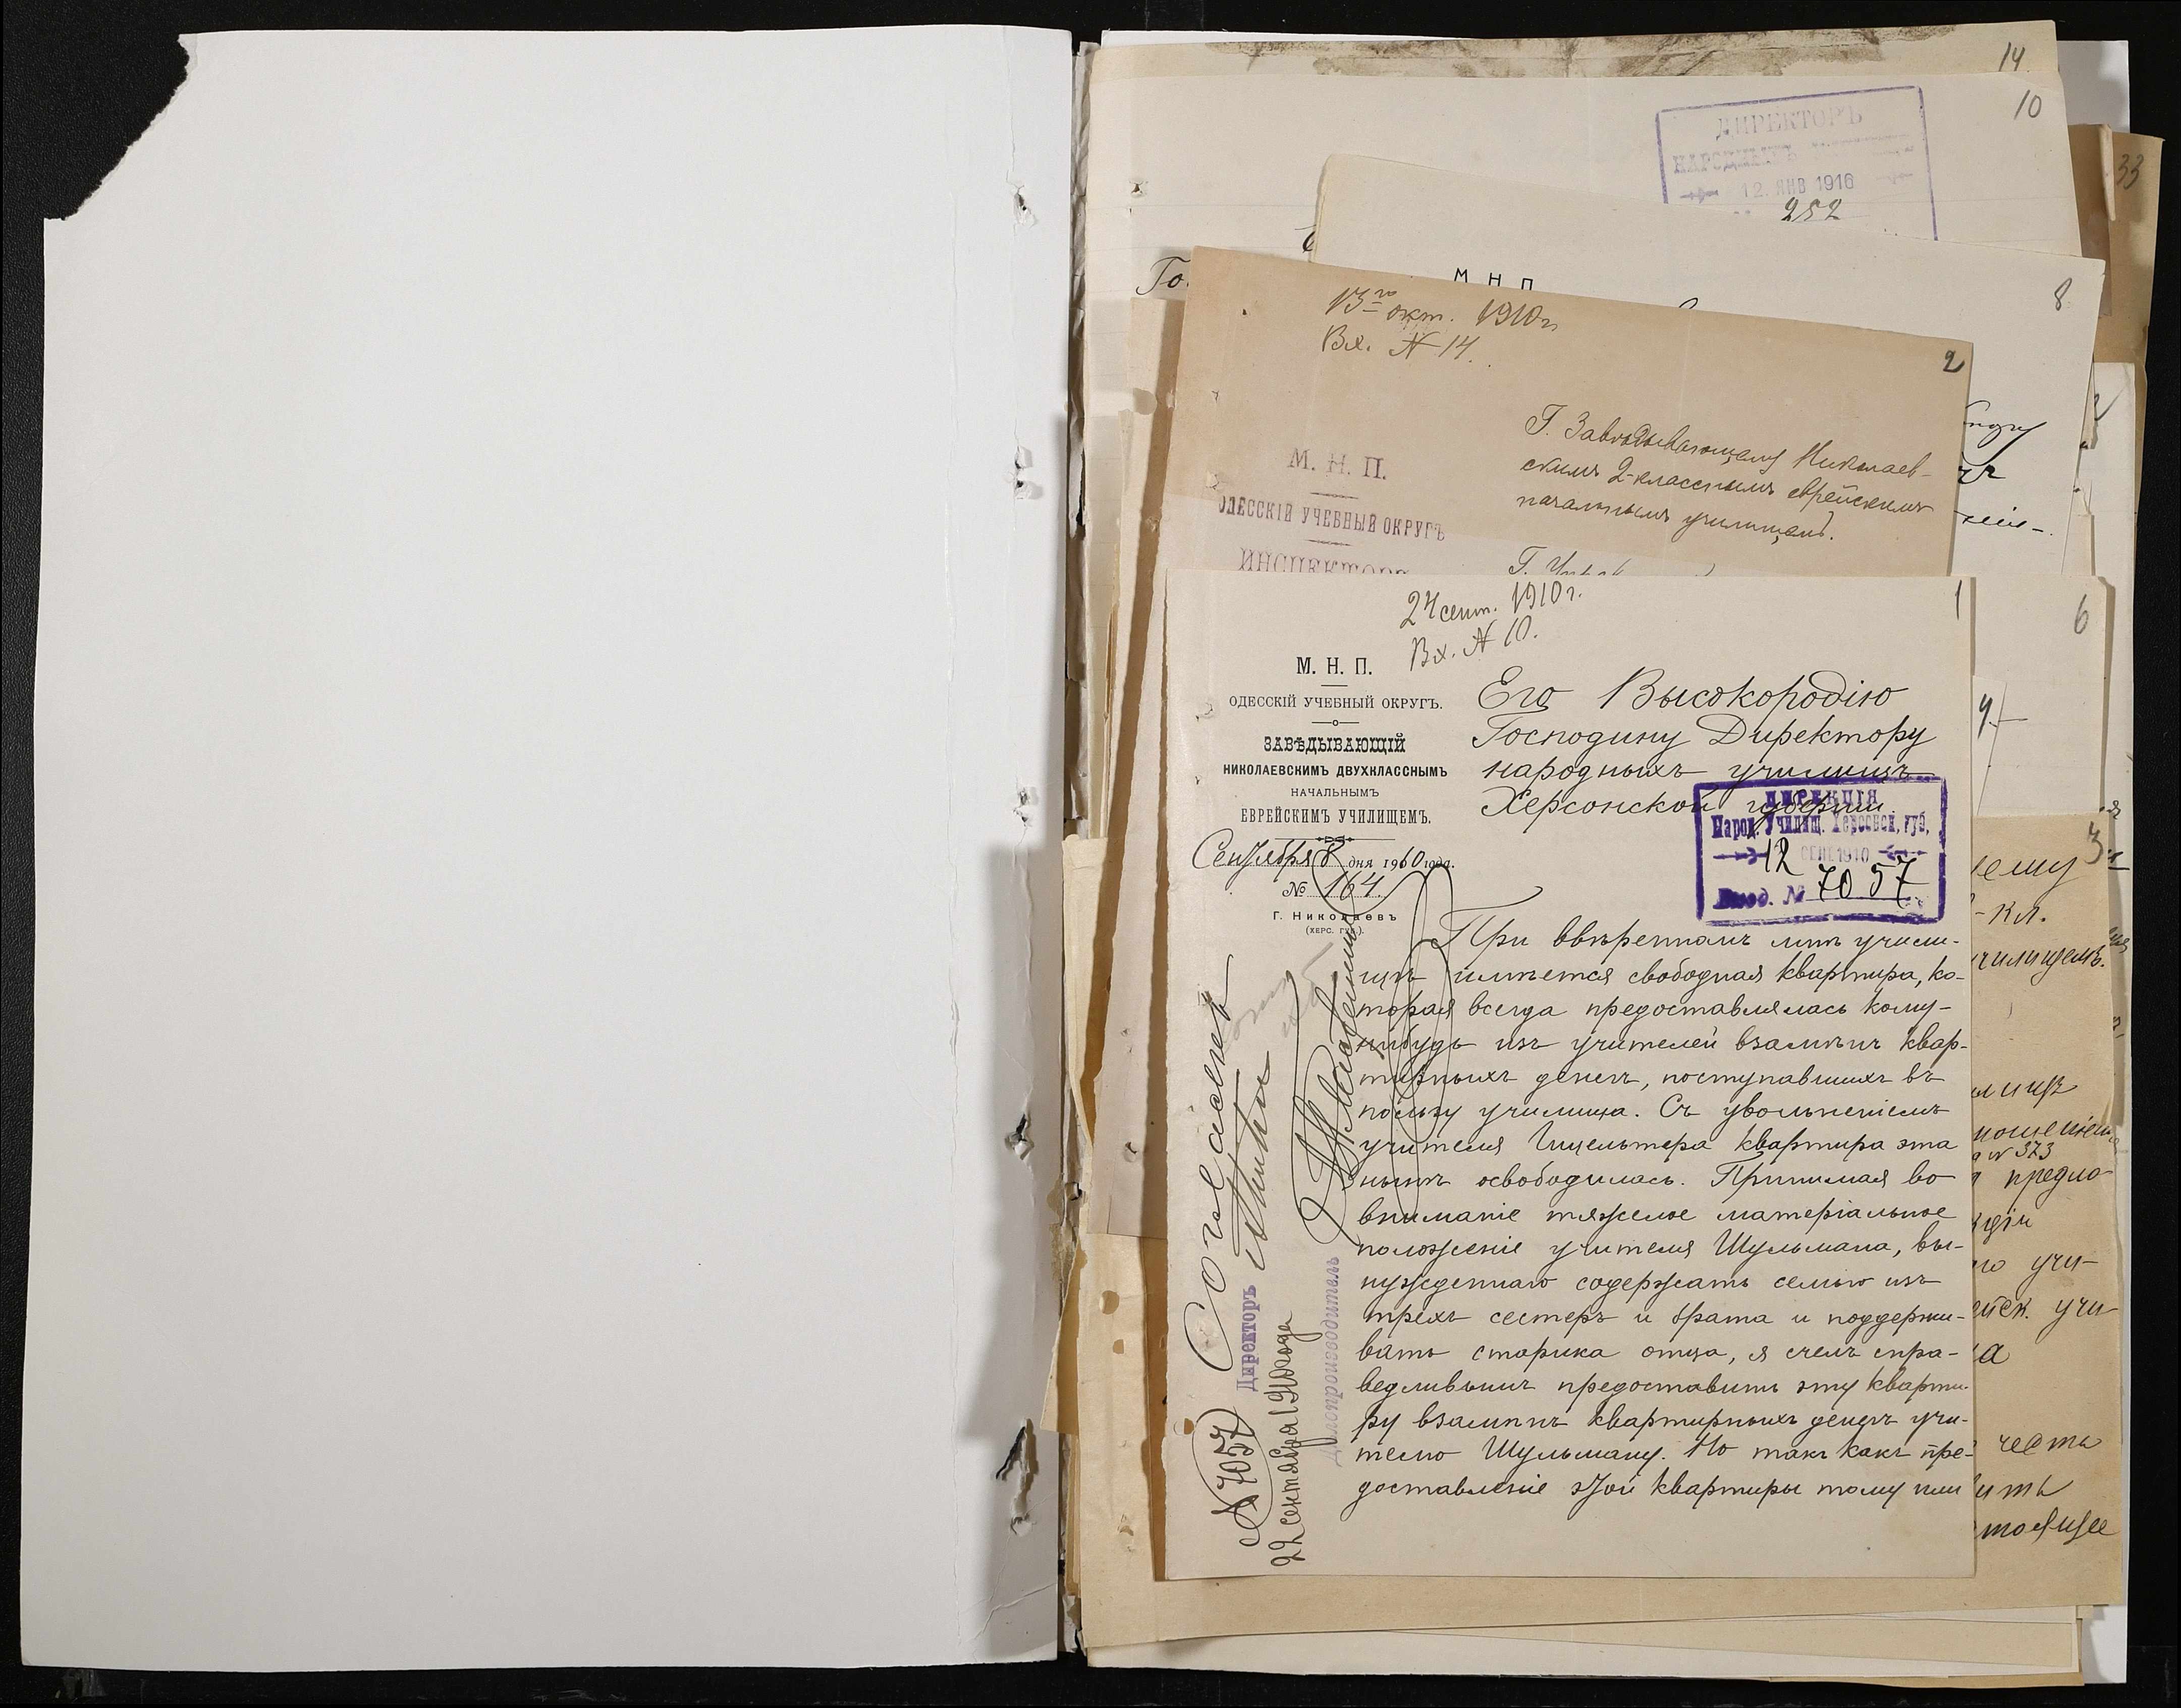 14
10
ДИРЕКТОРЪ
НАРОДНЫХЪ
12. ЯНВ 1916
252
33
М Н П
8
13го окт. 1910 г.
Вх. № 14.
2
Г. Завѣдывающему Николаев-
скимъ 2-класснымъ еврейскимъ
начальнымъ училищемъ.
М. Н. П.
ОДЕССКІЙ УЧЕБНЫЙ ОКРУГЪ
ИНСПЕКТОРЪ
24 сент. 1910 г.
Вх. № 10.
1
6
М. Н. П.
ОДЕССКІЙ УЧЕБНЫЙ ОКРУГЪ.
ЗАВѢДЫВАЮЩІЙ
НИКОЛАЕВСКИМЪ ДВУХКЛАССНЫМЪ
НАЧАЛЬНЫМЪ
ЕВРЕЙСКИМЪ УЧИЛИЩЕМЪ.
Сентября 8 дня 1910 года.
№ 164.
Г. Николаевъ
(ХЕРС. ГУБ.).
Его Высокородію
Господину Директору
народныхъ училищъ
Херсонской губерніи.
ДИРЕКЦІЯ
Народ. Училищ. Херсонск. губ.
12 СЕН 1910
Вход. № 7057
При ввѣренномъ мнѣ учили-
щѣ имѣется свободная квартира, ко-
торая всегда предоставлялась кому-
нибудь изъ учителей взамѣнъ квар-
тирныхъ денегъ, поступавшихъ въ
пользу училища. Съ увольненіемъ
учителя квартира эта
нынѣ освободилась. Принимая во
вниманіе тяжелое матеріальное
положеніе учителя Шульмана, вы-
нужденнаго содержать семью изъ
трехъ сестеръ и брата и поддержи-
вать старика отца, я счелъ спра-
ведливымъ предоставить эту кварти-
ру взамѣнъ квартирныхъ денегъ учи-
телю Шульману. Но такъ какъ пре-
доставленіе этой квартиры тому или
Согласенъ
Директоръ
№ 7057
22 сентября 1910 года
Дѣлопроизводитель
3
ему
-кл.
училищемъ.
№ 373
предло-
учи-
учи-
честь